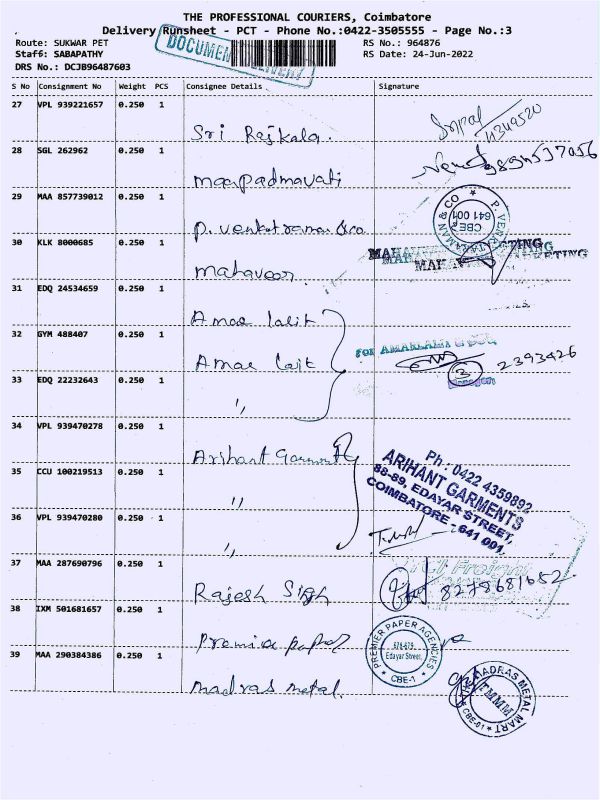 THE PROFESSIONAL COURIERS, Coimbatore
Delivery Runsheet - PCT - Phone No.:0422-3505555 - Page No.:3
Route: SUKWAR PET
RS No.: 964876
Staff: SABAPATHY
RS Date: 24-Jun-2022
DRS No.: DCJB96487603
S No Consignment No Weight PCS Consignee Details Signature
27 VPL 939221657 0.250 1
Sri Rajkala.
28 SGL 262962 0.250 1
maapadmavati
29 MAA 857739012 0.250 1
P. VENKATARAMAN & CO
CBE
641 001
P. Venkatraman &co
30 KLK 8000685 0.250 1
MARKETING
mahaveer
31 EDQ 24534659 0.250 1
Amar lalit
32 GYM 488407 0.250 1
FOR
Amar lalit
2393426
3
33 EDQ 22232643 0.250 1
"
34 VPL 939470278 0.250 1
Arihant Garments
Ph : 0422 4359892
ARIHANT GARMENTS
88-89, EDAYAR STREET,
COIMBATORE - 641 001.
35 CCU 100219513 0.250 1
"
36 VPL 939470280 0.250 1
"
37 MAA 287690796 0.250 1
Rajesh Singh
8278681652
38 IXM 501681657 0.250 1
Premier paper
PREMIER PAPER AGENCIES
Edayar Street,
CBE-1
39 MAA 290384386 0.250 1
madras metal.
MADRAS METAL MART
TMMM
CBE-01